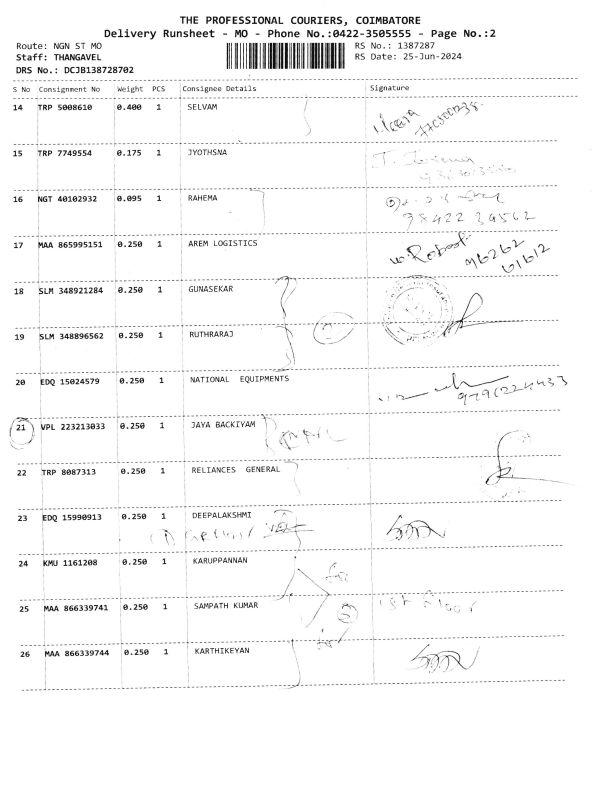 THE PROFESSIONAL COURIERS, COIMBATORE
Delivery Runsheet - MO - Phone No.:0422-3505555 - Page No.:2
Route: NGN ST MO
RS No.: 1387287
Staff: THANGAVEL
RS Date: 25-Jun-2024
DRS No.: DCJB138728702
S No Consignment No Weight PCS Consignee Details Signature
14 TRP 5008610 0.400 1 SELVAM
15 TRP 7749554 0.175 1 JYOTHSNA
16 NGT 40102932 0.095 1 RAHEMA
98422 39562
17 MAA 865995151 0.250 1 AREM LOGISTICS
96262
61612
18 SLM 348921284 0.250 1 GUNASEKAR
19 SLM 348896562 0.250 1 RUTHRARAJ
20 EDQ 15024579 0.250 1 NATIONAL EQUIPMENTS
21 VPL 223213033 0.250 1 JAYA BACKIYAM
22 TRP 8087313 0.250 1 RELIANCES GENERAL
23 EDQ 15990913 0.250 1 DEEPALAKSHMI
24 KMU 1161208 0.250 1 KARUPPANNAN
25 MAA 866339741 0.250 1 SAMPATH KUMAR
1st Floor
26 MAA 866339744 0.250 1 KARTHIKEYAN